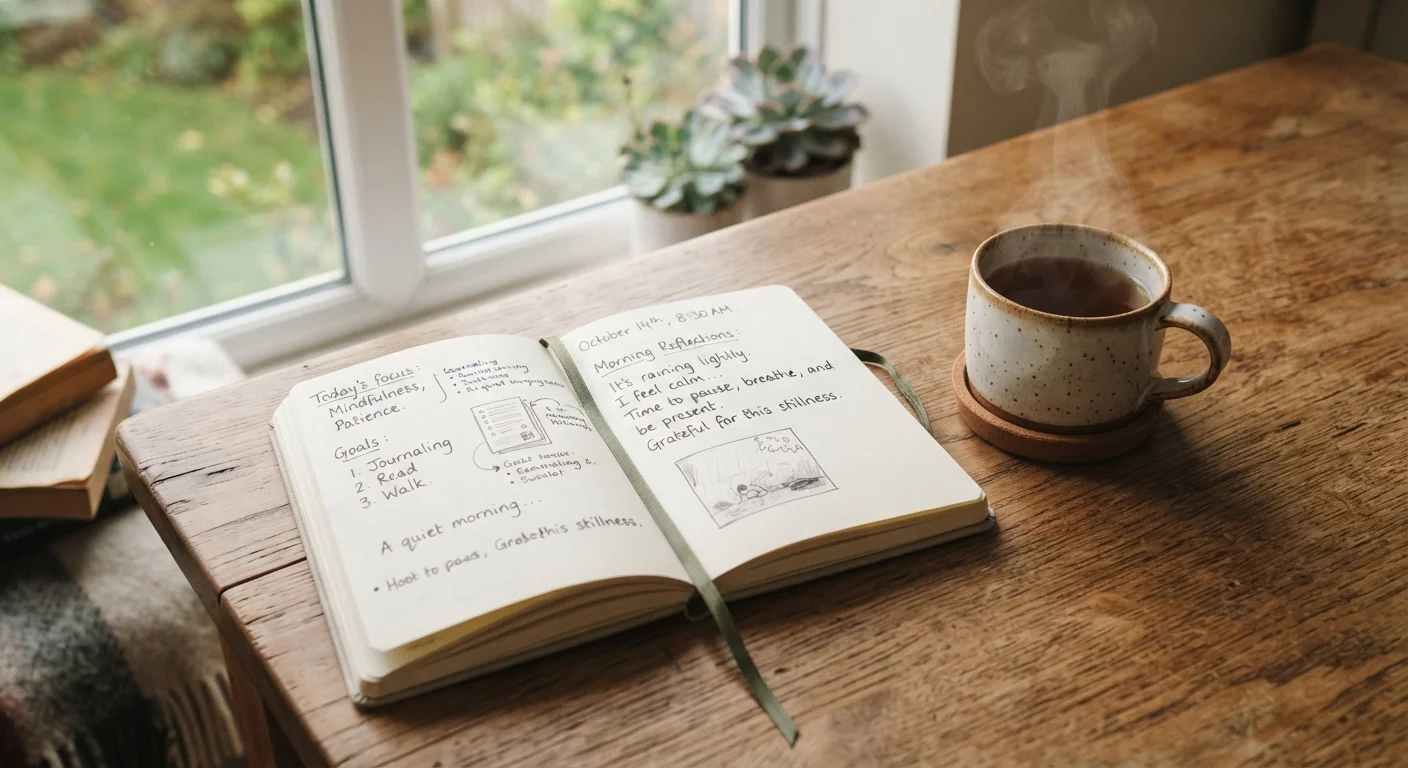 Today's focus:
Mindfulness,
Patience.
Goals:
1. Journaling
2. Read
3. Walk.
A quiet morning...
• Hoot to paas, Gratethis stillness.
October 14th, 8:30 AM.
Morning Reflections:
It's raining lightly.
I feel calm...
Time to pause, breathe, and
be present.
Grateful for this stillness.